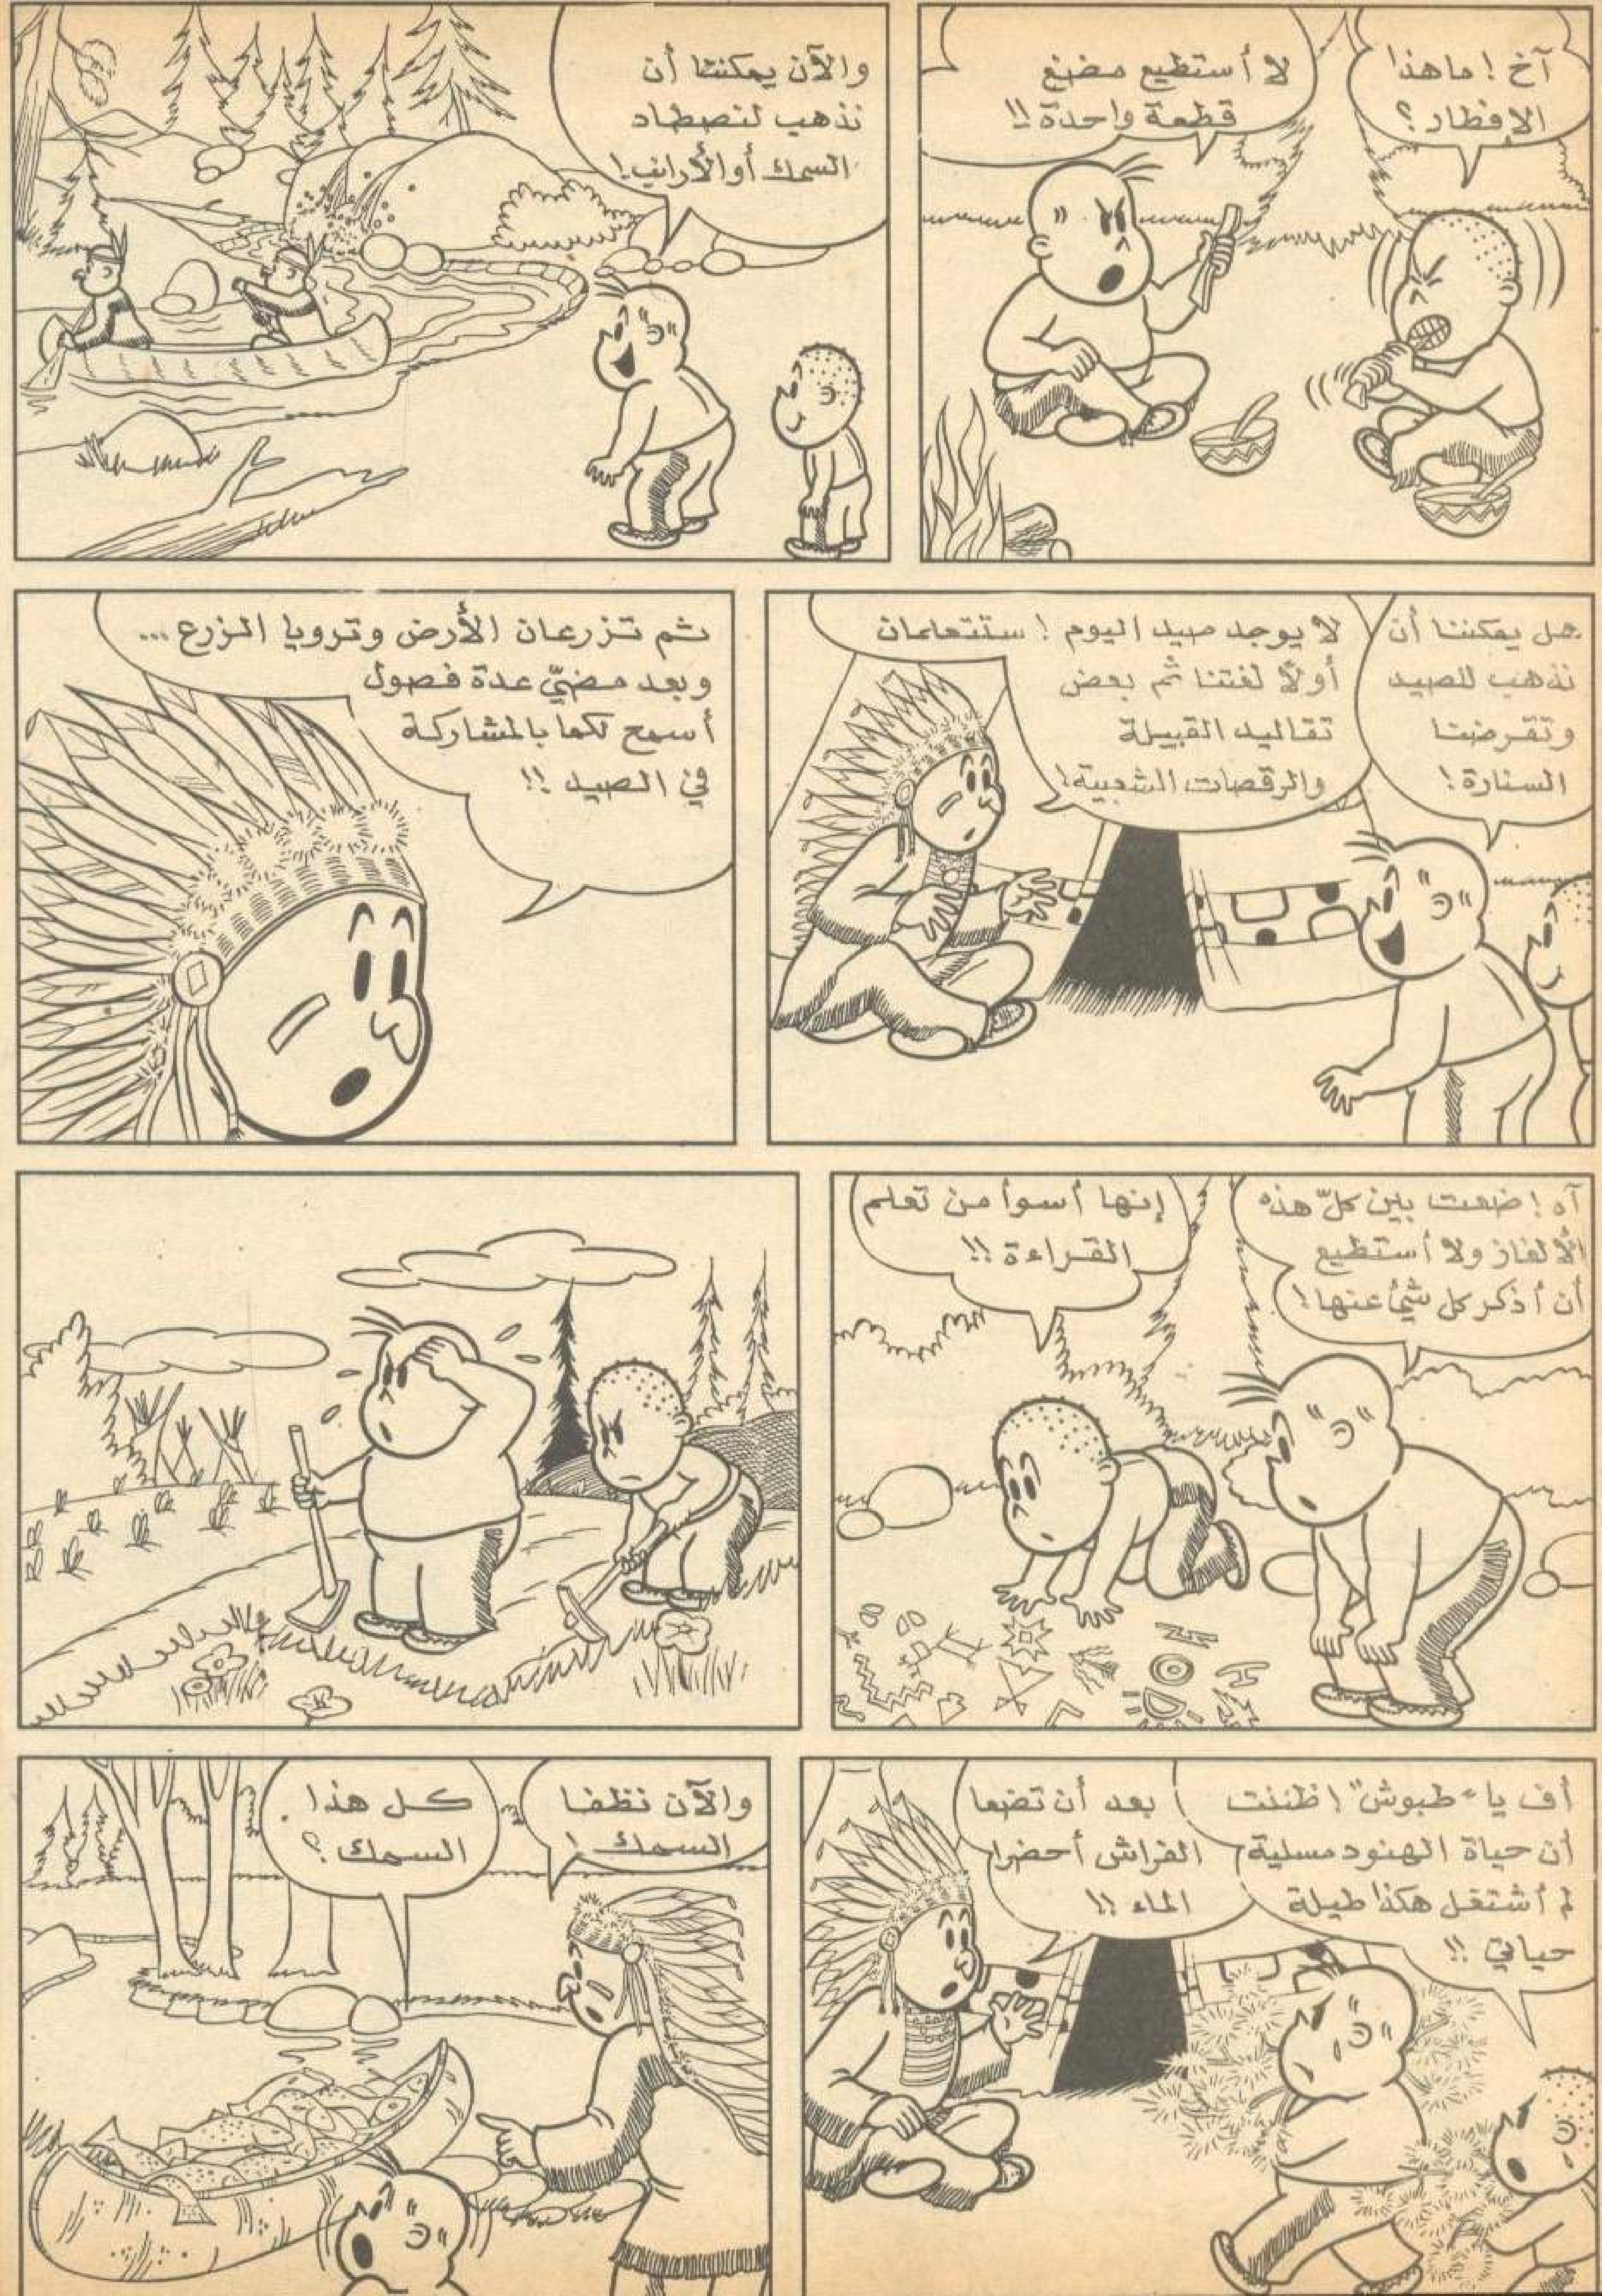 آخ ! ما هذا
الإفطار ؟
لا أستطيع مضغ
قطعة واحدة !!
والآن يمكننا أن
نذهب لنصطاد
السمك أو الأرانب !
هل يمكننا أن
نذهب للصيد
وتقرضنا
السنارة !
لا يوجد صيد اليوم ! ستتعلمان
أولاً لغتنا ثم بعض
تقاليد القبيلة
والرقصات الشعبية !
ثم تزرعان الأرض وترويا الزرع ...
وبعد مضيّ عدة فصول
أسمح لكما بالمشاركة
في الصيد !!
آه ! ضعت بين كلّ هذه
الألغاز ولا أستطيع
أن أذكر كل شيء عنها !
إنها أسوأ من تعلم
القراءة !!
أف يا "طبوش" ! ظننت
أن حياة الهنود مسلية
لم أشتغل هكذا طيلة
حياتي !!
بعد أن تضعا
الفراش أحضرا
الماء !!
والآن نظفا
السمك !
كل هذا
السمك ؟